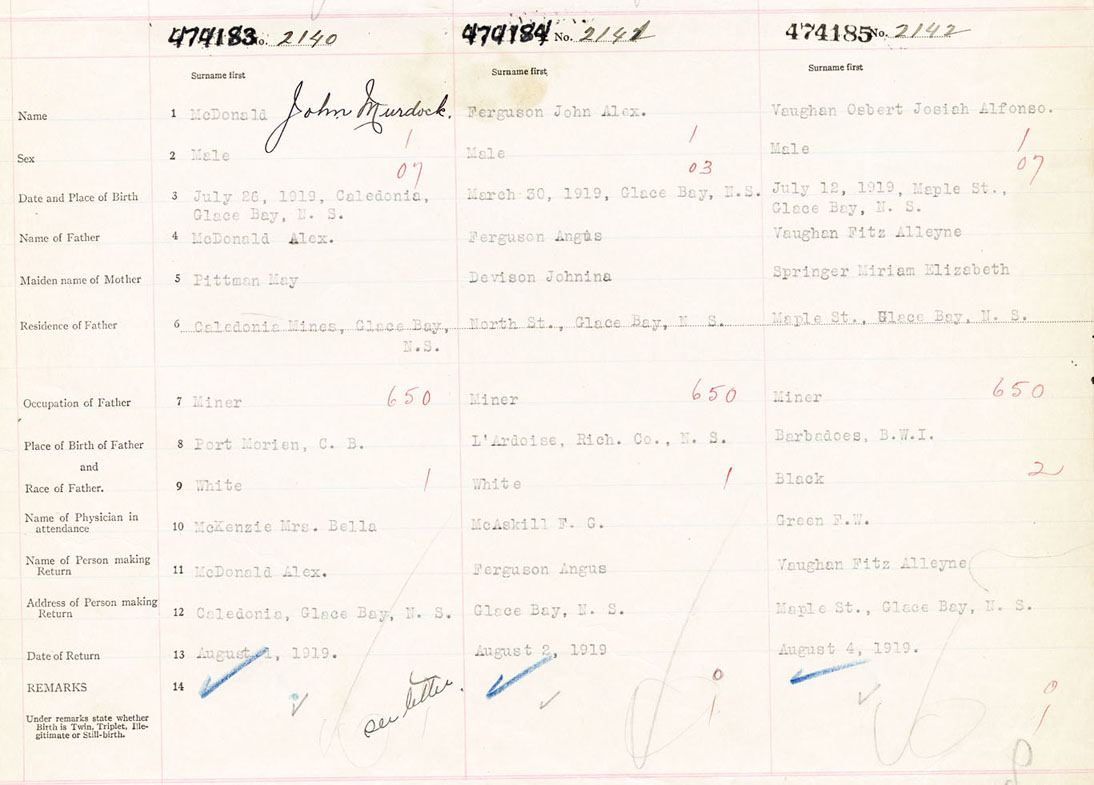 474183 No. 2140 474184 No. 2141 474185 No. 2142
Surname first Surname first Surname first
Name 1 McDonald John Murdock. Ferguson John Alex. Vaughan Osbert Josiah Alfonso.
1 1 1
Sex 2 Male Male Male
07 03 07
Date and Place of Birth 3 July 26, 1919, Caledonia, March 30, 1919, Glace Bay, N.S. July 12, 1919, Maple St.,
Glace Bay, N. S. Glace Bay, N. S.
Name of Father 4 McDonald Alex. Ferguson Angus Vaughan Fitz Alleyne
Maiden name of Mother 5 Pittman May Devison Johnina Springer Miriam Elizabeth
Residence of Father 6 Caledonia Mines, Glace Bay, North St., Glace Bay, N S. Maple St., Glace Bay, N. S.
N.S.
Occupation of Father 7 Miner 650 Miner 650 Miner 650
Place of Birth of Father 8 Port Morien, C. B. L'Ardoise, Rich. Co., N. S. Barbadoes, B.W.I.
and
Race of Father. 9 White 1 White 1 Black 2
Name of Physician in
attendance 10 McKenzie Mrs. Bella McAskill F. G. Green F.W.
Name of Person making
Return 11 McDonald Alex. Ferguson Angus Vaughan Fitz Alleyne
Address of Person making
Return 12 Caledonia, Glace Bay, N. S. Glace Bay, N. S. Maple St., Glace Bay, N. S.
Date of Return 13 August 1, 1919. August 2, 1919 August 4, 1919.
REMARKS 14 see letter. 0 0
1 1
Under remarks state whether
Birth is Twin, Triplet, Ille-
gitimate or Still-birth.